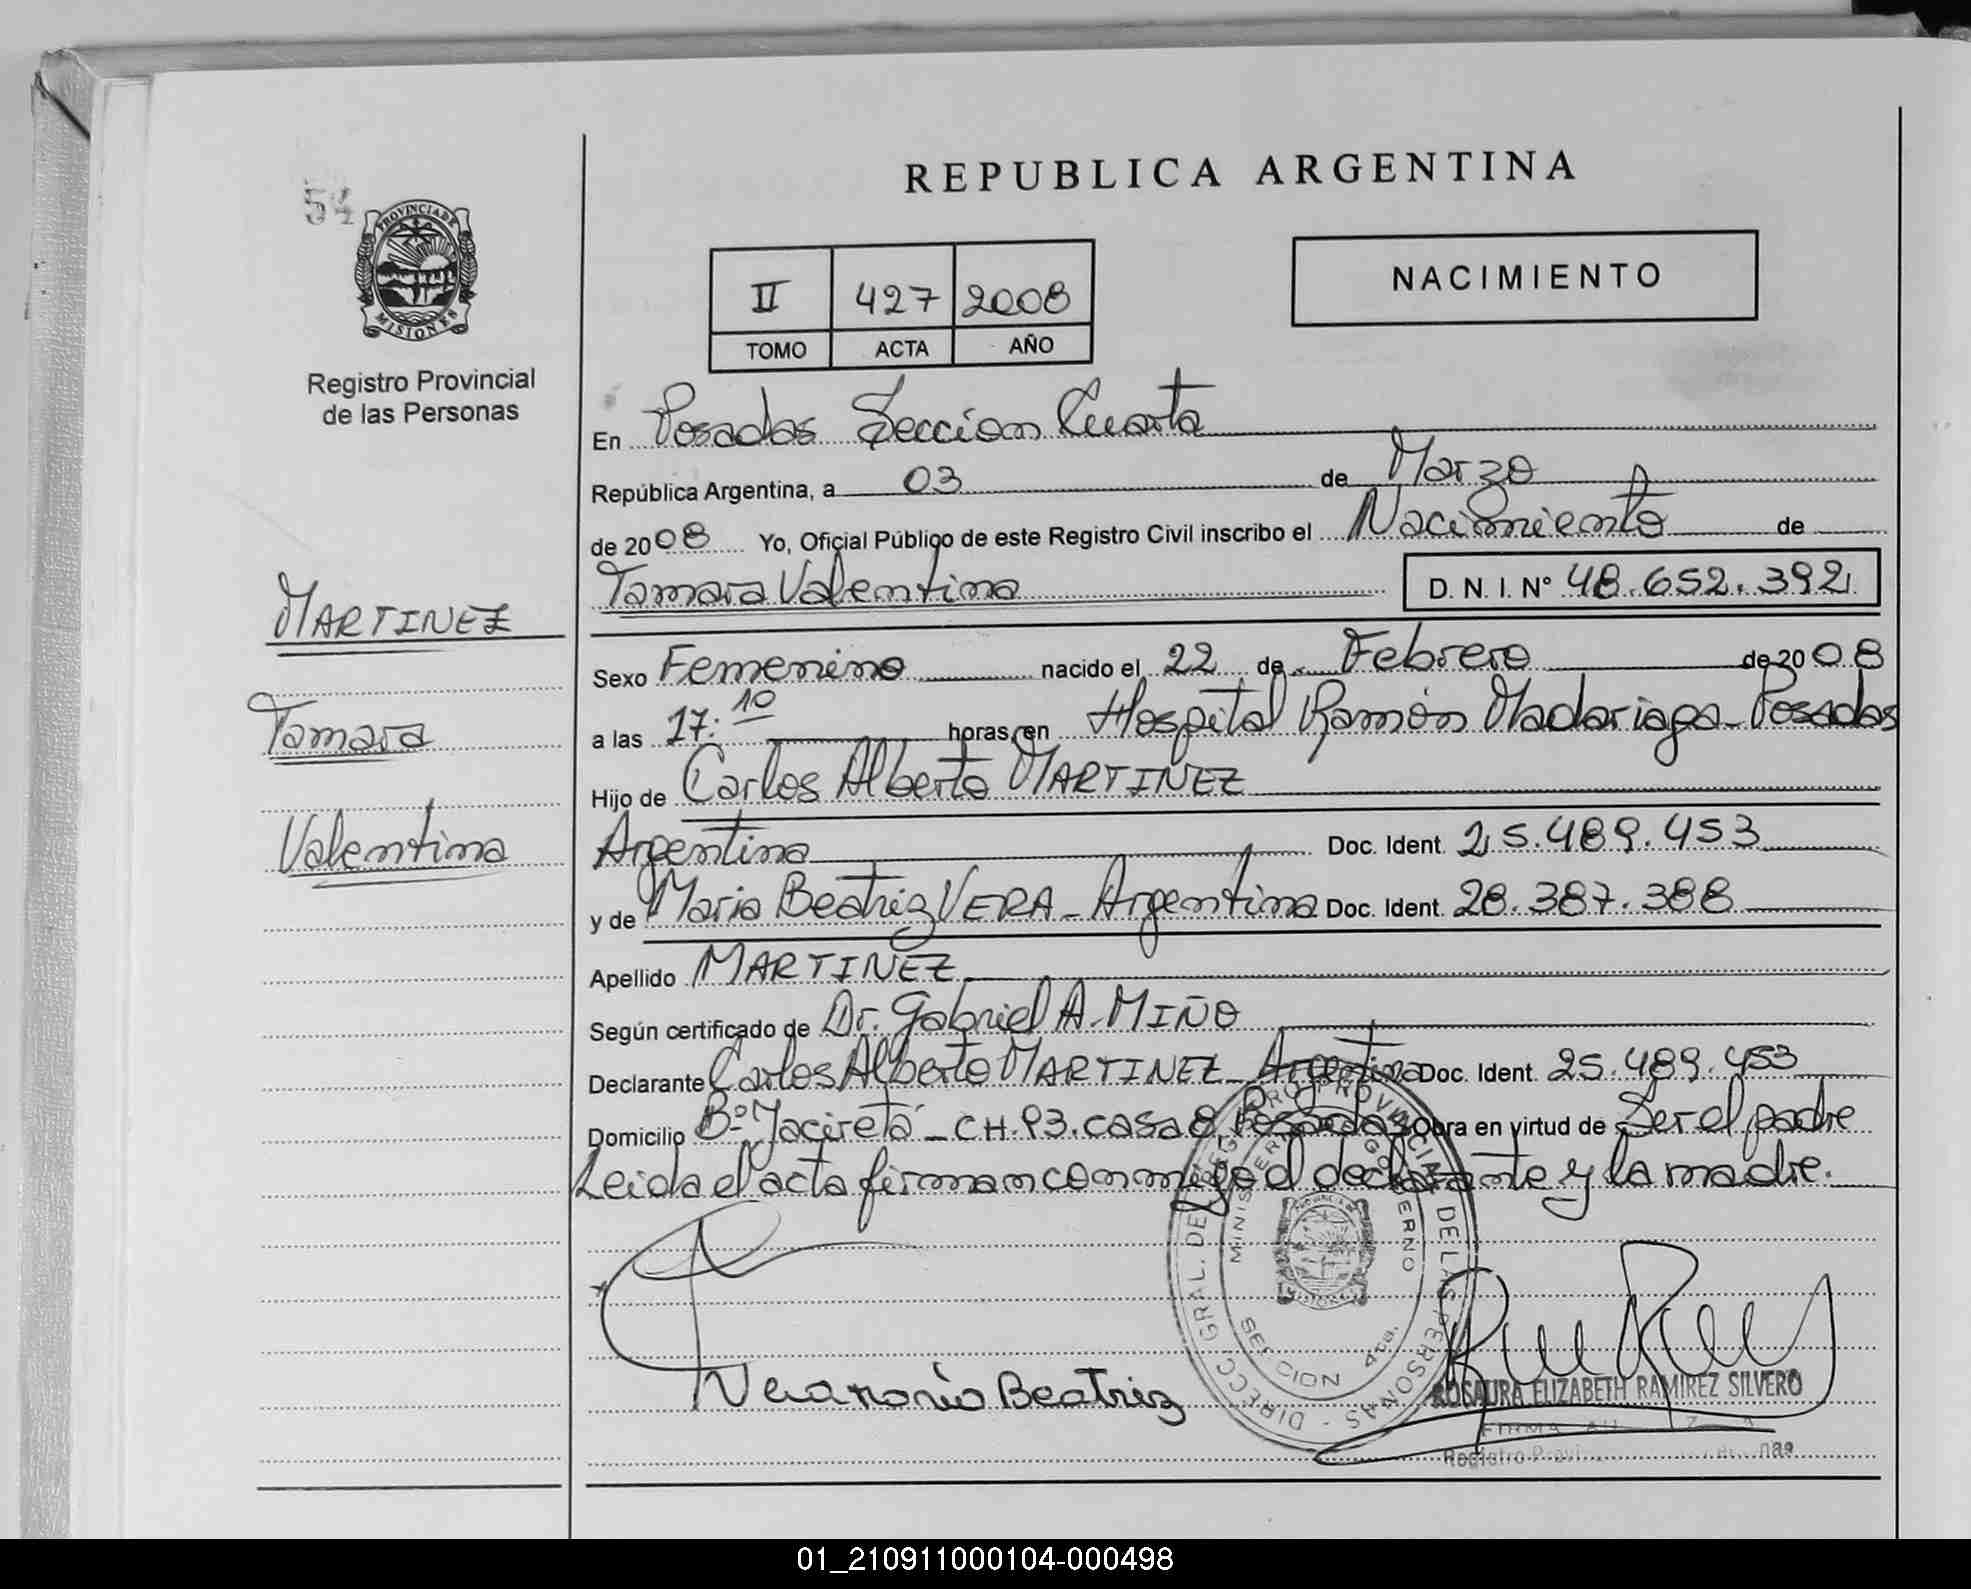 REPUBLICA ARGENTINA
54
PROVINCIA DE
MISIONES
Registro Provincial
de las Personas
II 427 2008
TOMO ACTA AÑO
NACIMIENTO
En Posadas Seccion Cuarta
República Argentina, a 03 de Marzo
de 2008 Yo, Oficial Público de este Registro Civil inscribo el Nacimiento de
Tamara Valentina D. N. I. Nº 48.652.392
MARTINEZ
Tamara
Valentina
Sexo Femenino nacido el 22 de Febrero de 2008
a las 17:10 horas, en Hospital Ramón Madariaga - Posadas
Hijo de Carlos Alberto MARTINEZ
Argentina Doc. Ident. 25.489.453
y de Maria Beatriz VERA - Argentina Doc. Ident. 28.387.388
Apellido MARTINEZ
Según certificado de Dr. Gabriel A. MIÑO
Declarante Carlos Alberto MARTINEZ - Argentina Doc. Ident. 25.489.453
Domicilio Bº Yacireta - CH. 93. casa 8, Posadas Obra en virtud de Ser el padre
Leida el acta firman conmigo el declarante y la madre.
DIRECC. GRAL. DEL REGISTRO PROVINCIAL DE LAS PERSONAS -
MINISTERIO GOBIERNO
SECCION 4ta.
Vera maría Beatriz
ROSAURA ELIZABETH RAMIREZ SILVERO
FIRMA
Registro
01_210911000104-000498